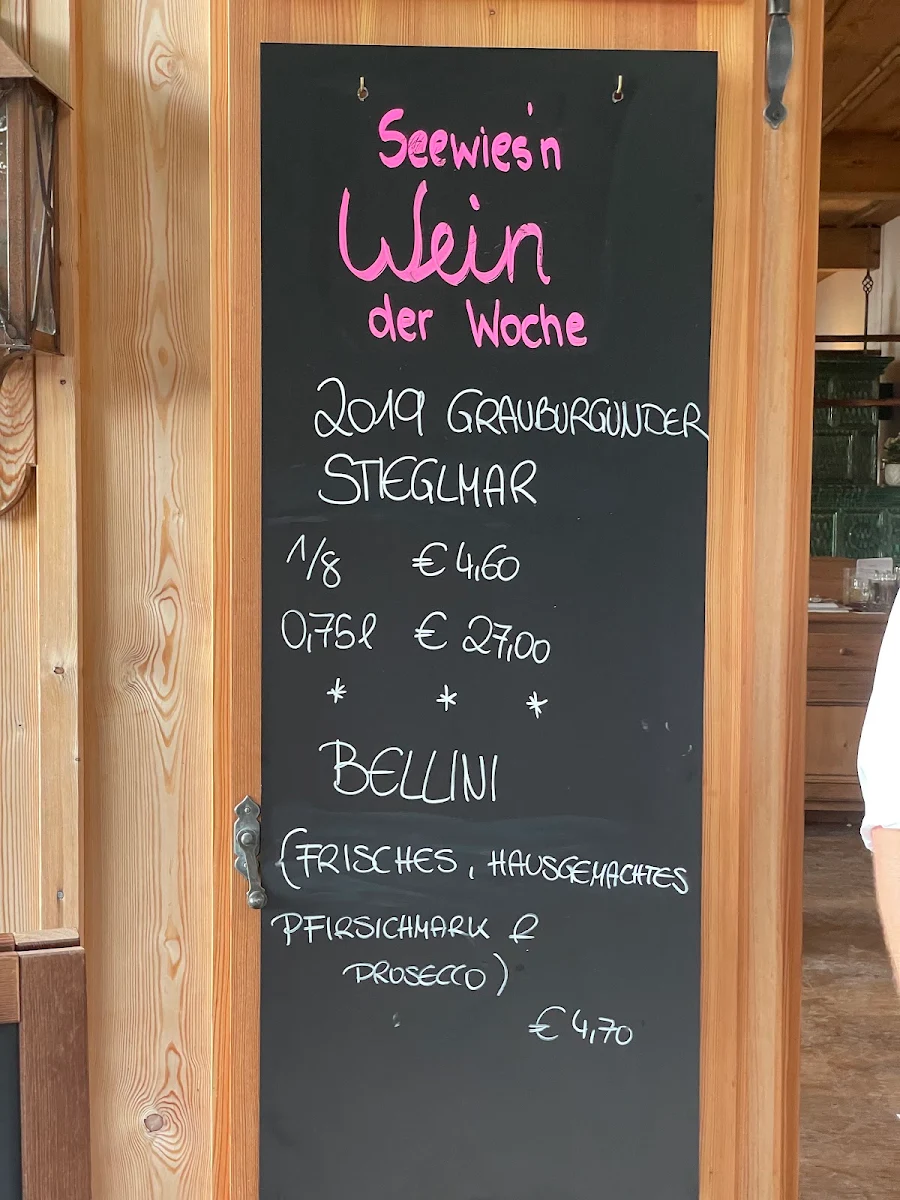 Seewies'n
Wein
der Woche
2019 GRAUBURGUNDER
STIEGLMAR
1/8 € 4,60
0,75l € 27,00
* * *
BELLINI
(FRISCHES, HAUSGEMACHTES
PFIRSICHMARK &
PROSECCO)
€ 4,70